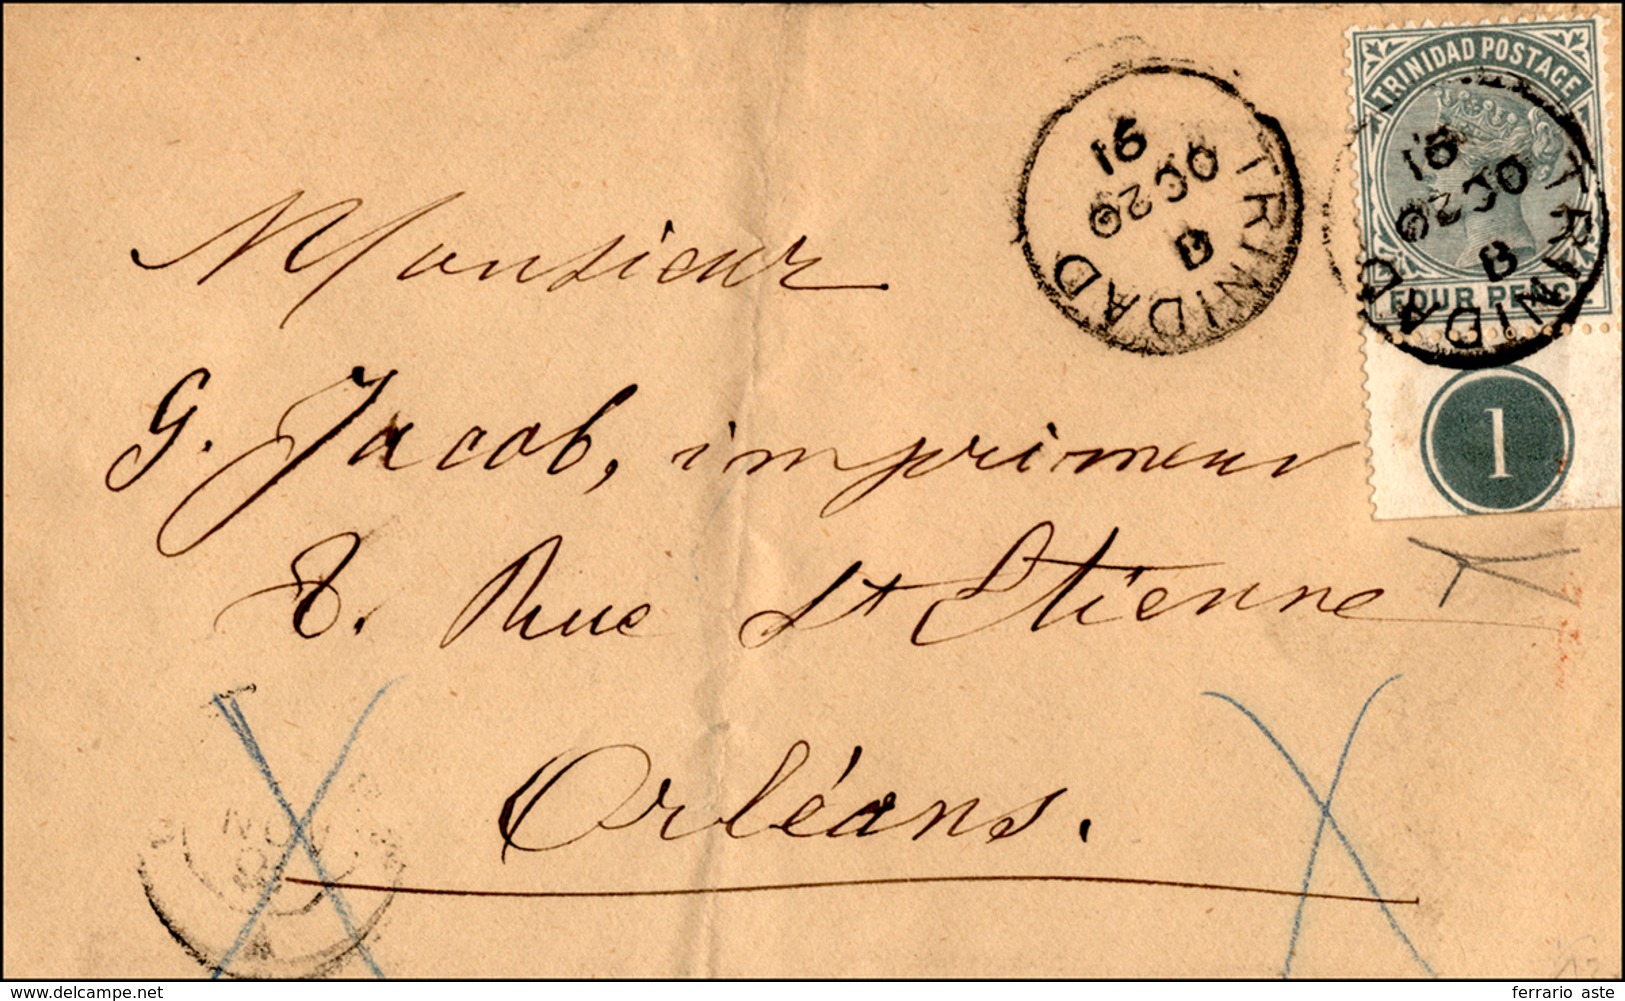 TRINIDAD POSTAGE
FOUR PENCE
TRINIDAD
B
OC 20
91
TRINIDAD
B
OC 20
91
1
Monsieur
G. Jacob, imprimeur
8. Rue St Etienne
Orléans.
NOV
delcampe.net
ferrario aste